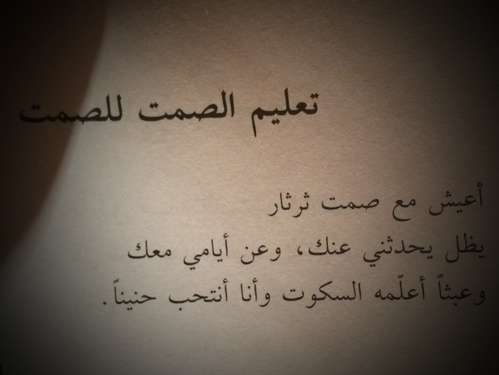 تعليم الصمت للصمت
أعيش مع صمت ثرثار
يظل يحدثني عنك، وعن أيامي معك
وعبثاً أعلّمه السكوت وأنا أنتحب حنيناً.